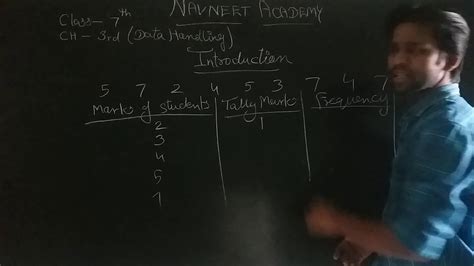 NAVNEET ACADEMY
Class- 7th
CH - 3rd (Data Handling)
Introduction
5 7 2 4 5 3 7 4 7
Marks of students Tally Marks Frequency
2 1
3
4
5
7